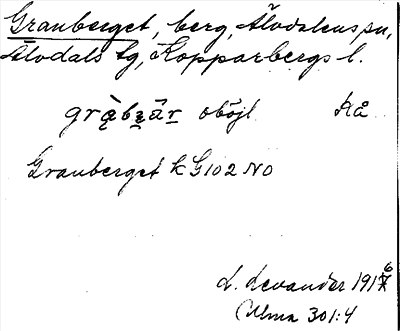 Granberget, berg, Älvdalens sn,
Älvdals tg, Kopparbergs l.
oböjl Kå
Granberget k G102 NO
L. Levander 1916
Ulma 301:4